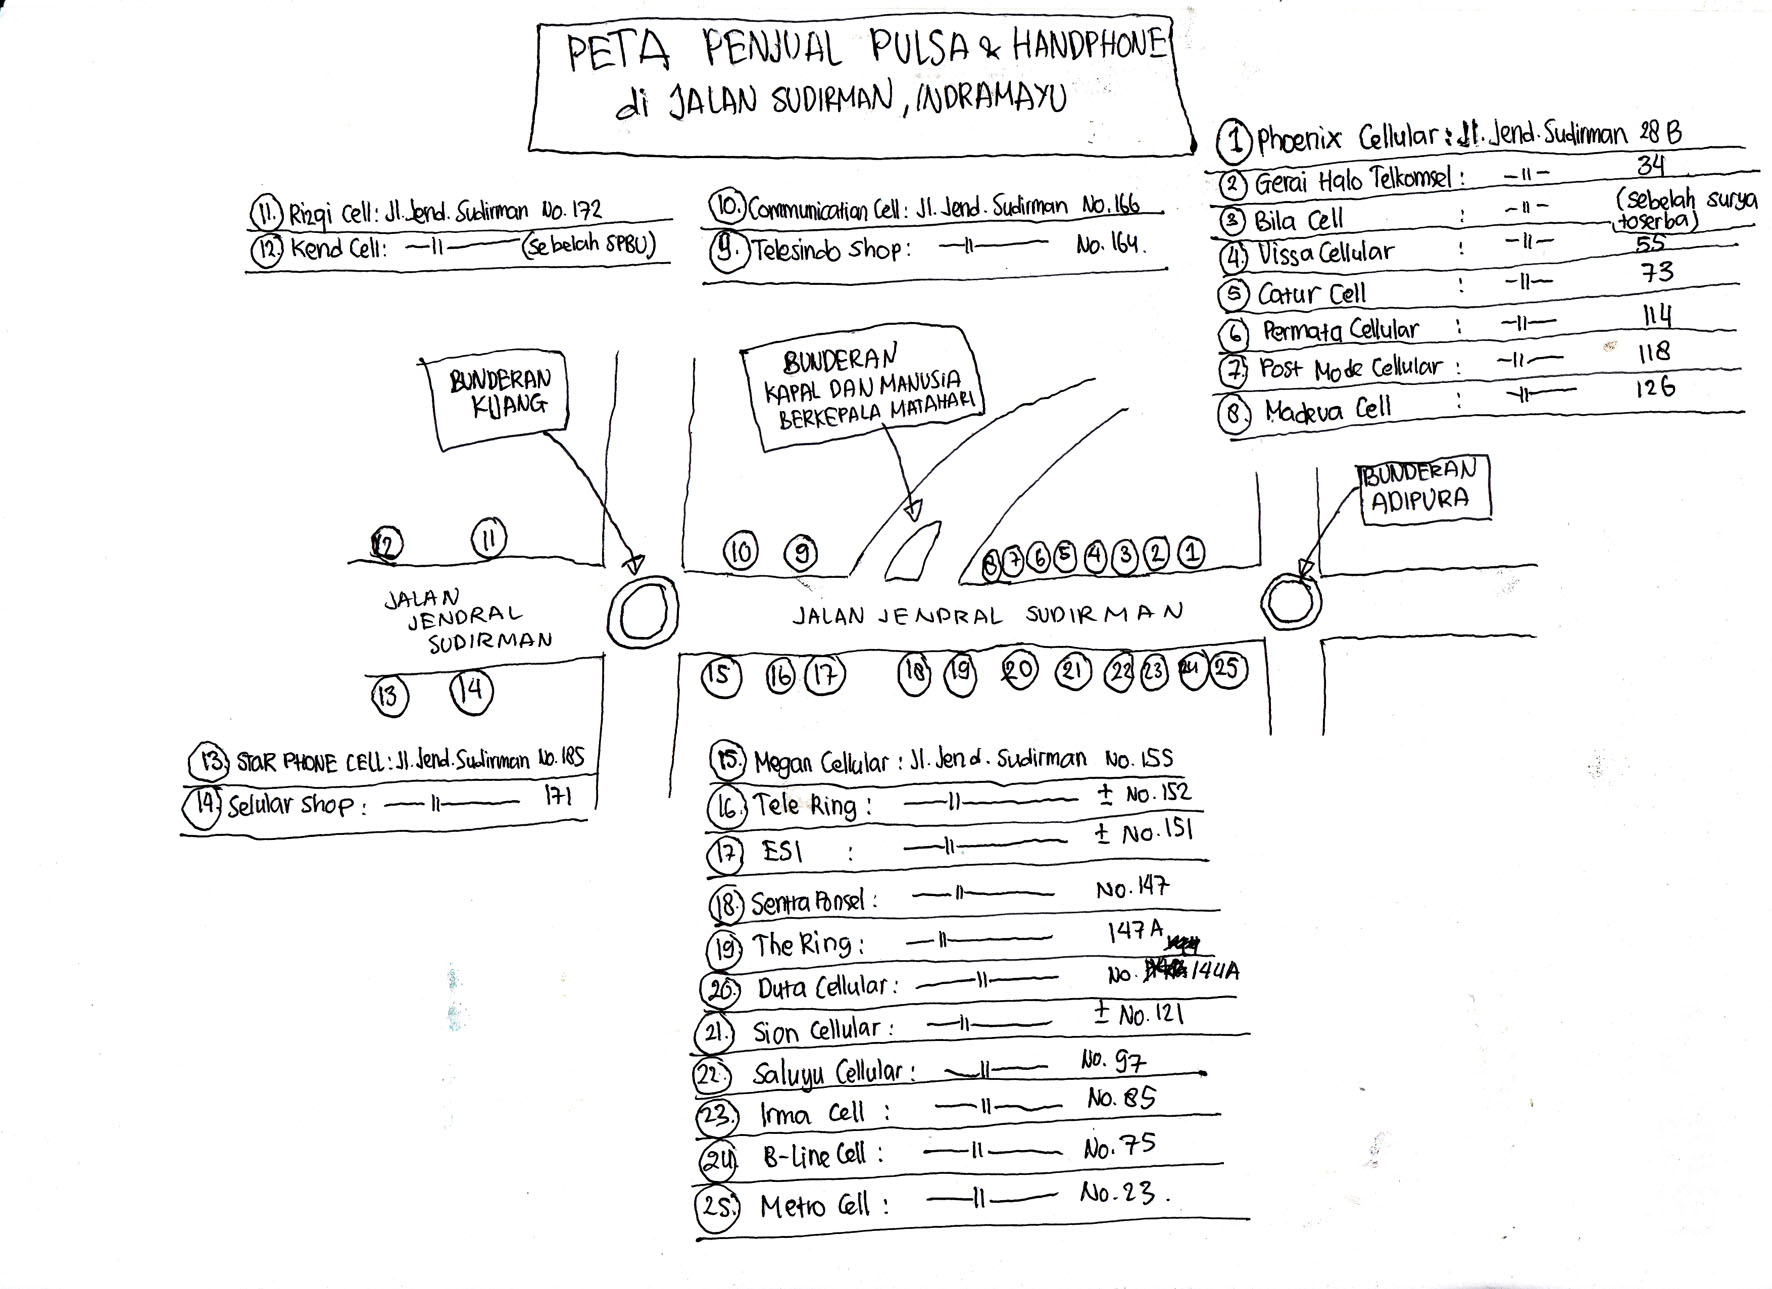 PETA PENJUAL PULSA & HANDPHONE
di JALAN SUDIRMAN, INDRAMAYU
1 Phoenix Cellular: Jl. Jend. Sudirman 28 B
2 Gerai Halo Telkomsel: -||- 34
3 Bila Cell : -||- (sebelah surya
toserba)
4. Vissa Cellular : -||- 55
5 Catur Cell : -||- 73
6 Permata Cellular : -||- 114
7. Post Mode Cellular: -||- 118
8. Madeva Cell : -||- 126
11. Rizqi Cell: Jl. Jend. Sudirman No. 172
12. Kend Cell: -||- (sebelah SPBU)
10. Communication Cell: Jl. Jend. Sudirman No. 166
9. Telesindo Shop: -||- No. 164.
BUNDERAN
KIJANG
BUNDERAN
KAPAL DAN MANUSIA
BERKEPALA MATAHARI
BUNDERAN
ADIPURA
12 11 10 9 8 7 6 5 4 3 2 1
JALAN
JENDRAL
SUDIRMAN
JALAN JENDRAL SUDIRMAN
13 14 15 16 17 18 19 20 21 22 23 24 25
13. STAR PHONE CELL: Jl. Jend. Sudirman No. 185
14. Selular Shop: -||- 171
15. Megan Cellular: Jl. Jend. Sudirman No. 155
16. Tele Ring: -||- ± No. 152
17. ESI : -||- ± No. 151
18. Sentra Ponsel: -||- No. 147
19. The Ring: -||- 147A
20. Duta Cellular: -||- No. 144A
21. Sion Cellular: -||- ± No. 121
22. Saluyu Cellular: -||- No. 97
23. Irma Cell : -||- No. 85
24. B-Line Cell : -||- No. 75
25. Metro Cell : -||- No. 23.